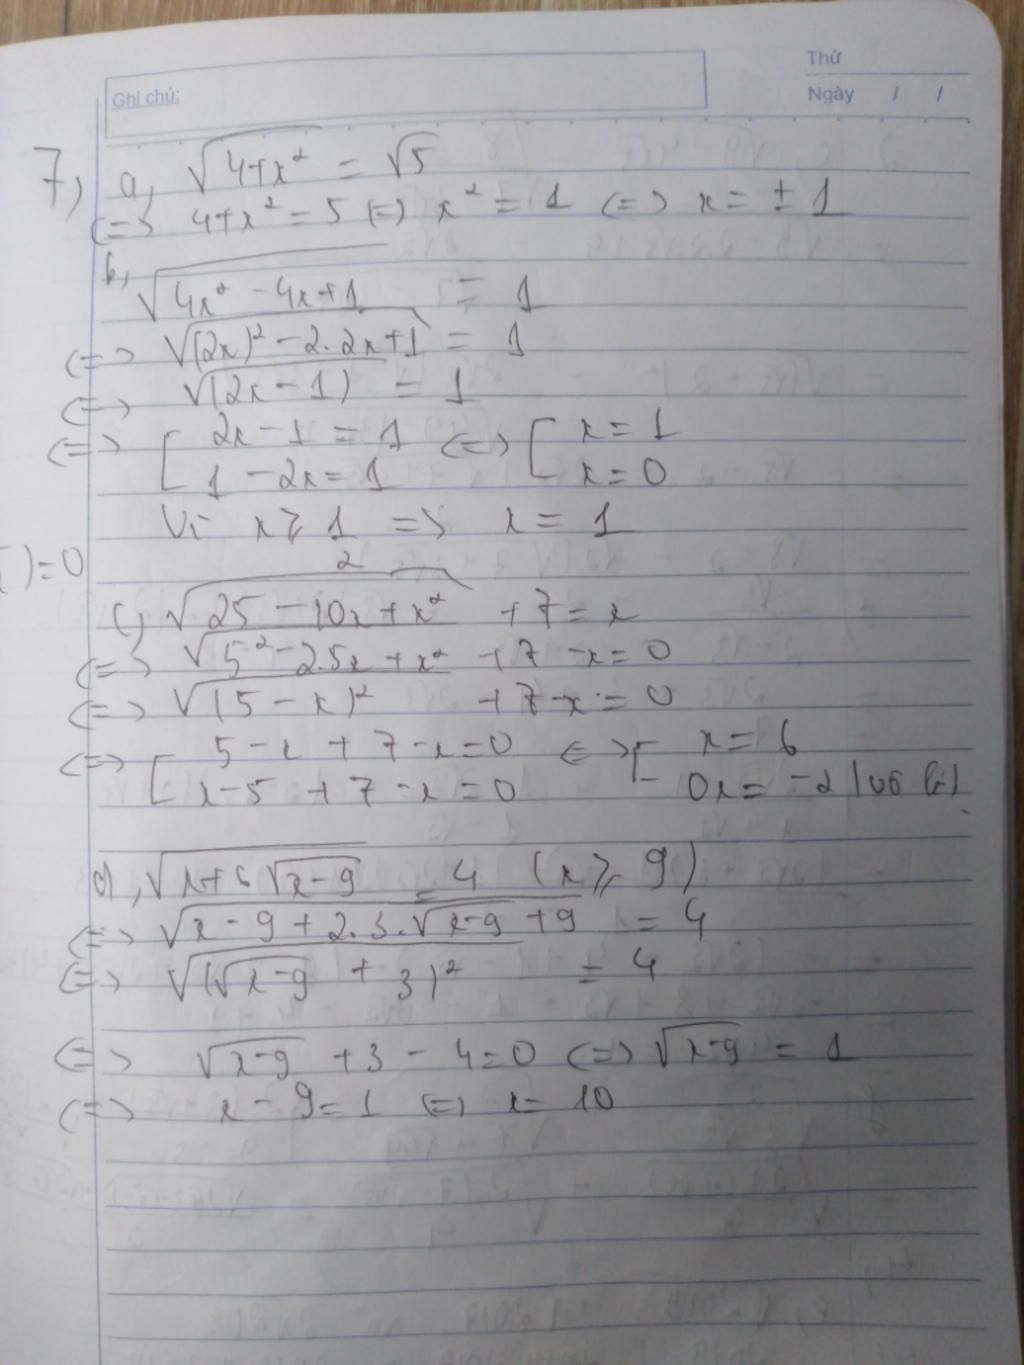 Thứ
Ghi chú:
Ngày / /
7, a, √(4+x²) = √5
<=> 4+x² = 5 <=> x² = 1 <=> x = ± 1
b,
√(4x² - 4x+1) = 1
<=> √((2x)² - 2.2x+1) = 1
<=> √((2x-1)) = 1
<=> [ 2x-1 = 1 <=> [ x = 1
1 - 2x = 1 x = 0
Vì x ≥ 1 => x = 1
2
)=0
c, √(25 - 10x + x²) + 7 = x
<=> √(5² - 2.5x + x²) + 7 - x = 0
<=> √((5 - x)²) + 7 - x = 0
<=> [ 5 - x + 7 - x = 0 <=> [ x = 6
x - 5 + 7 - x = 0 0x = -2 (vô lí)
d, √(x+6√(x-9)) = 4 (x ≥ 9)
<=> √(x - 9 + 2.3.√(x-9) + 9) = 4
<=> √((√(x-9) + 3)²) = 4
<=> √(x-9) + 3 - 4 = 0 <=> √(x-9) = 1
<=> x - 9 = 1 <=> x = 10